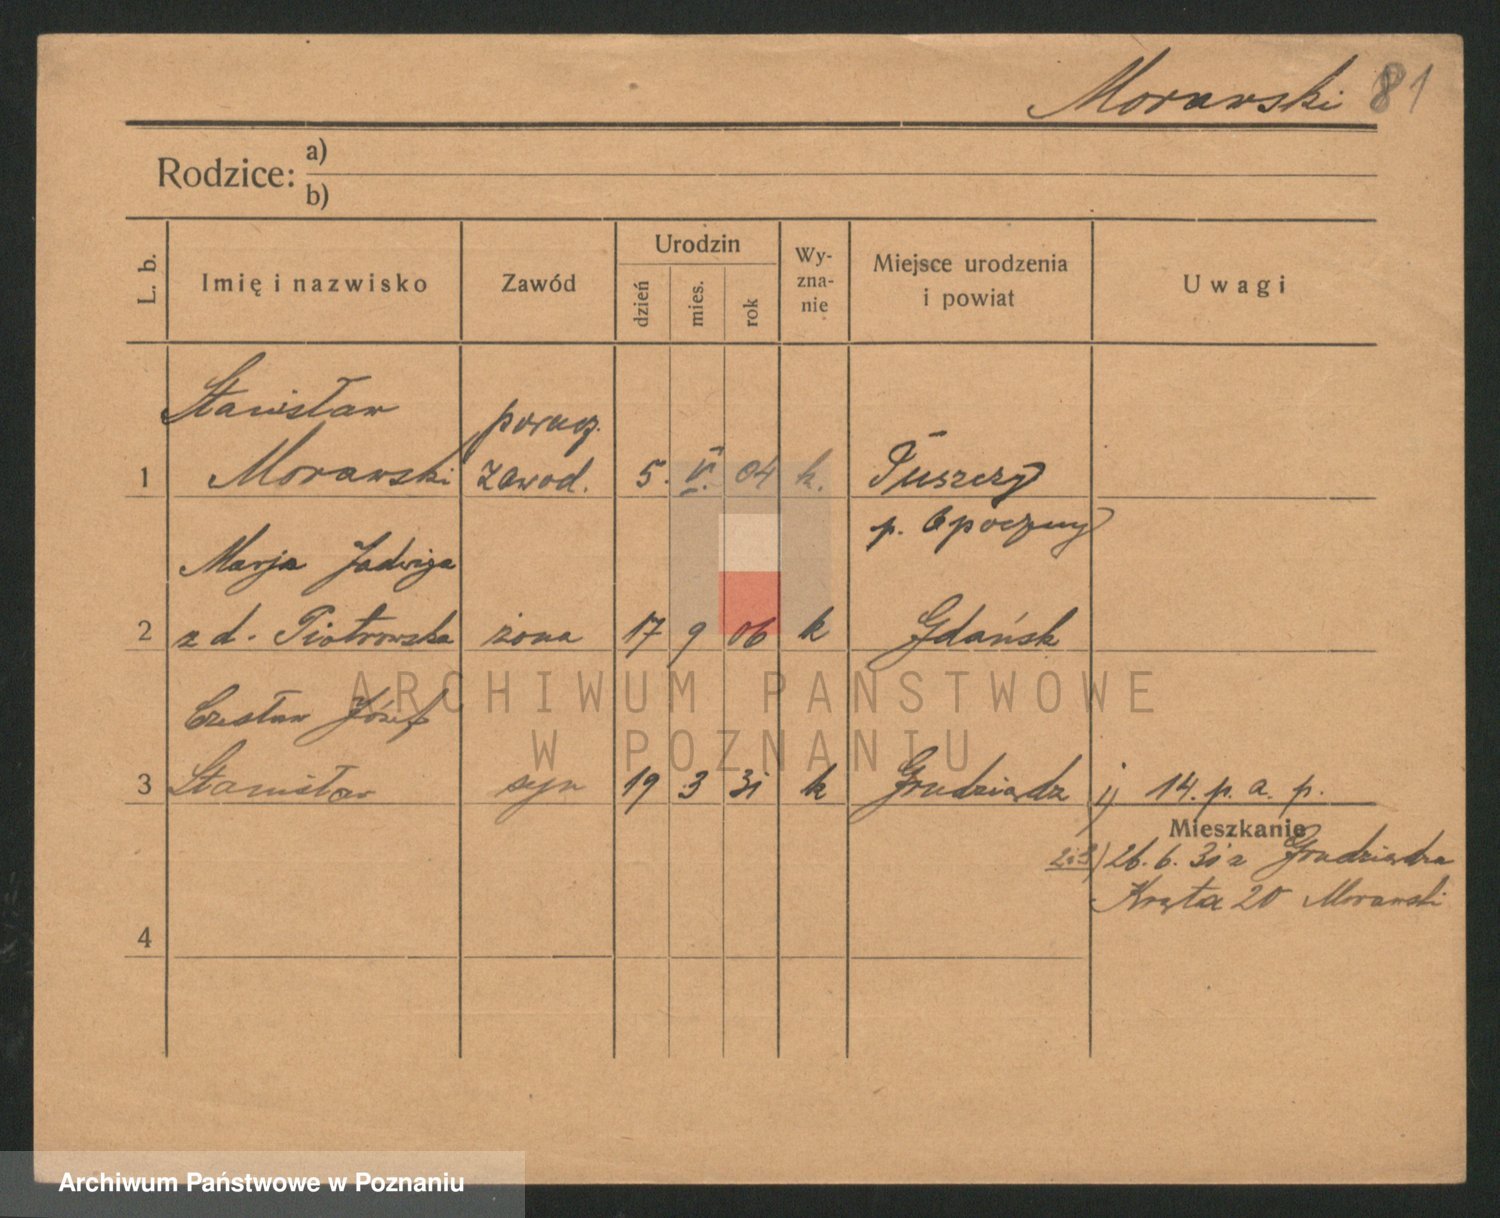 Morawski 81
Rodzice: a)
b)
L. b.
Imię i nazwisko
Zawód
Urodzin
dzień
mies.
rok
Wy-
zna-
nie
Miejsce urodzenia
i powiat
Uwagi
Stanisław porucz.
1 Morawski zawod. 5. VI. 04 k. Puszczy
p. Opoczny
Marja Jadwiga
2 z d. Piotrowska żona 17 9 06 k Gdańsk
Czesław Józef
3 Stanisław syn 19 3 31 k Grudziądz 1) 14. p. a. p.
Mieszkanie
2i3) 26. 6. 31 z Grudziądza
Kręta 20 Morawski
4
ARCHIWUM PAŃSTWOWE
W POZNANIU
Archiwum Państwowe w Poznaniu